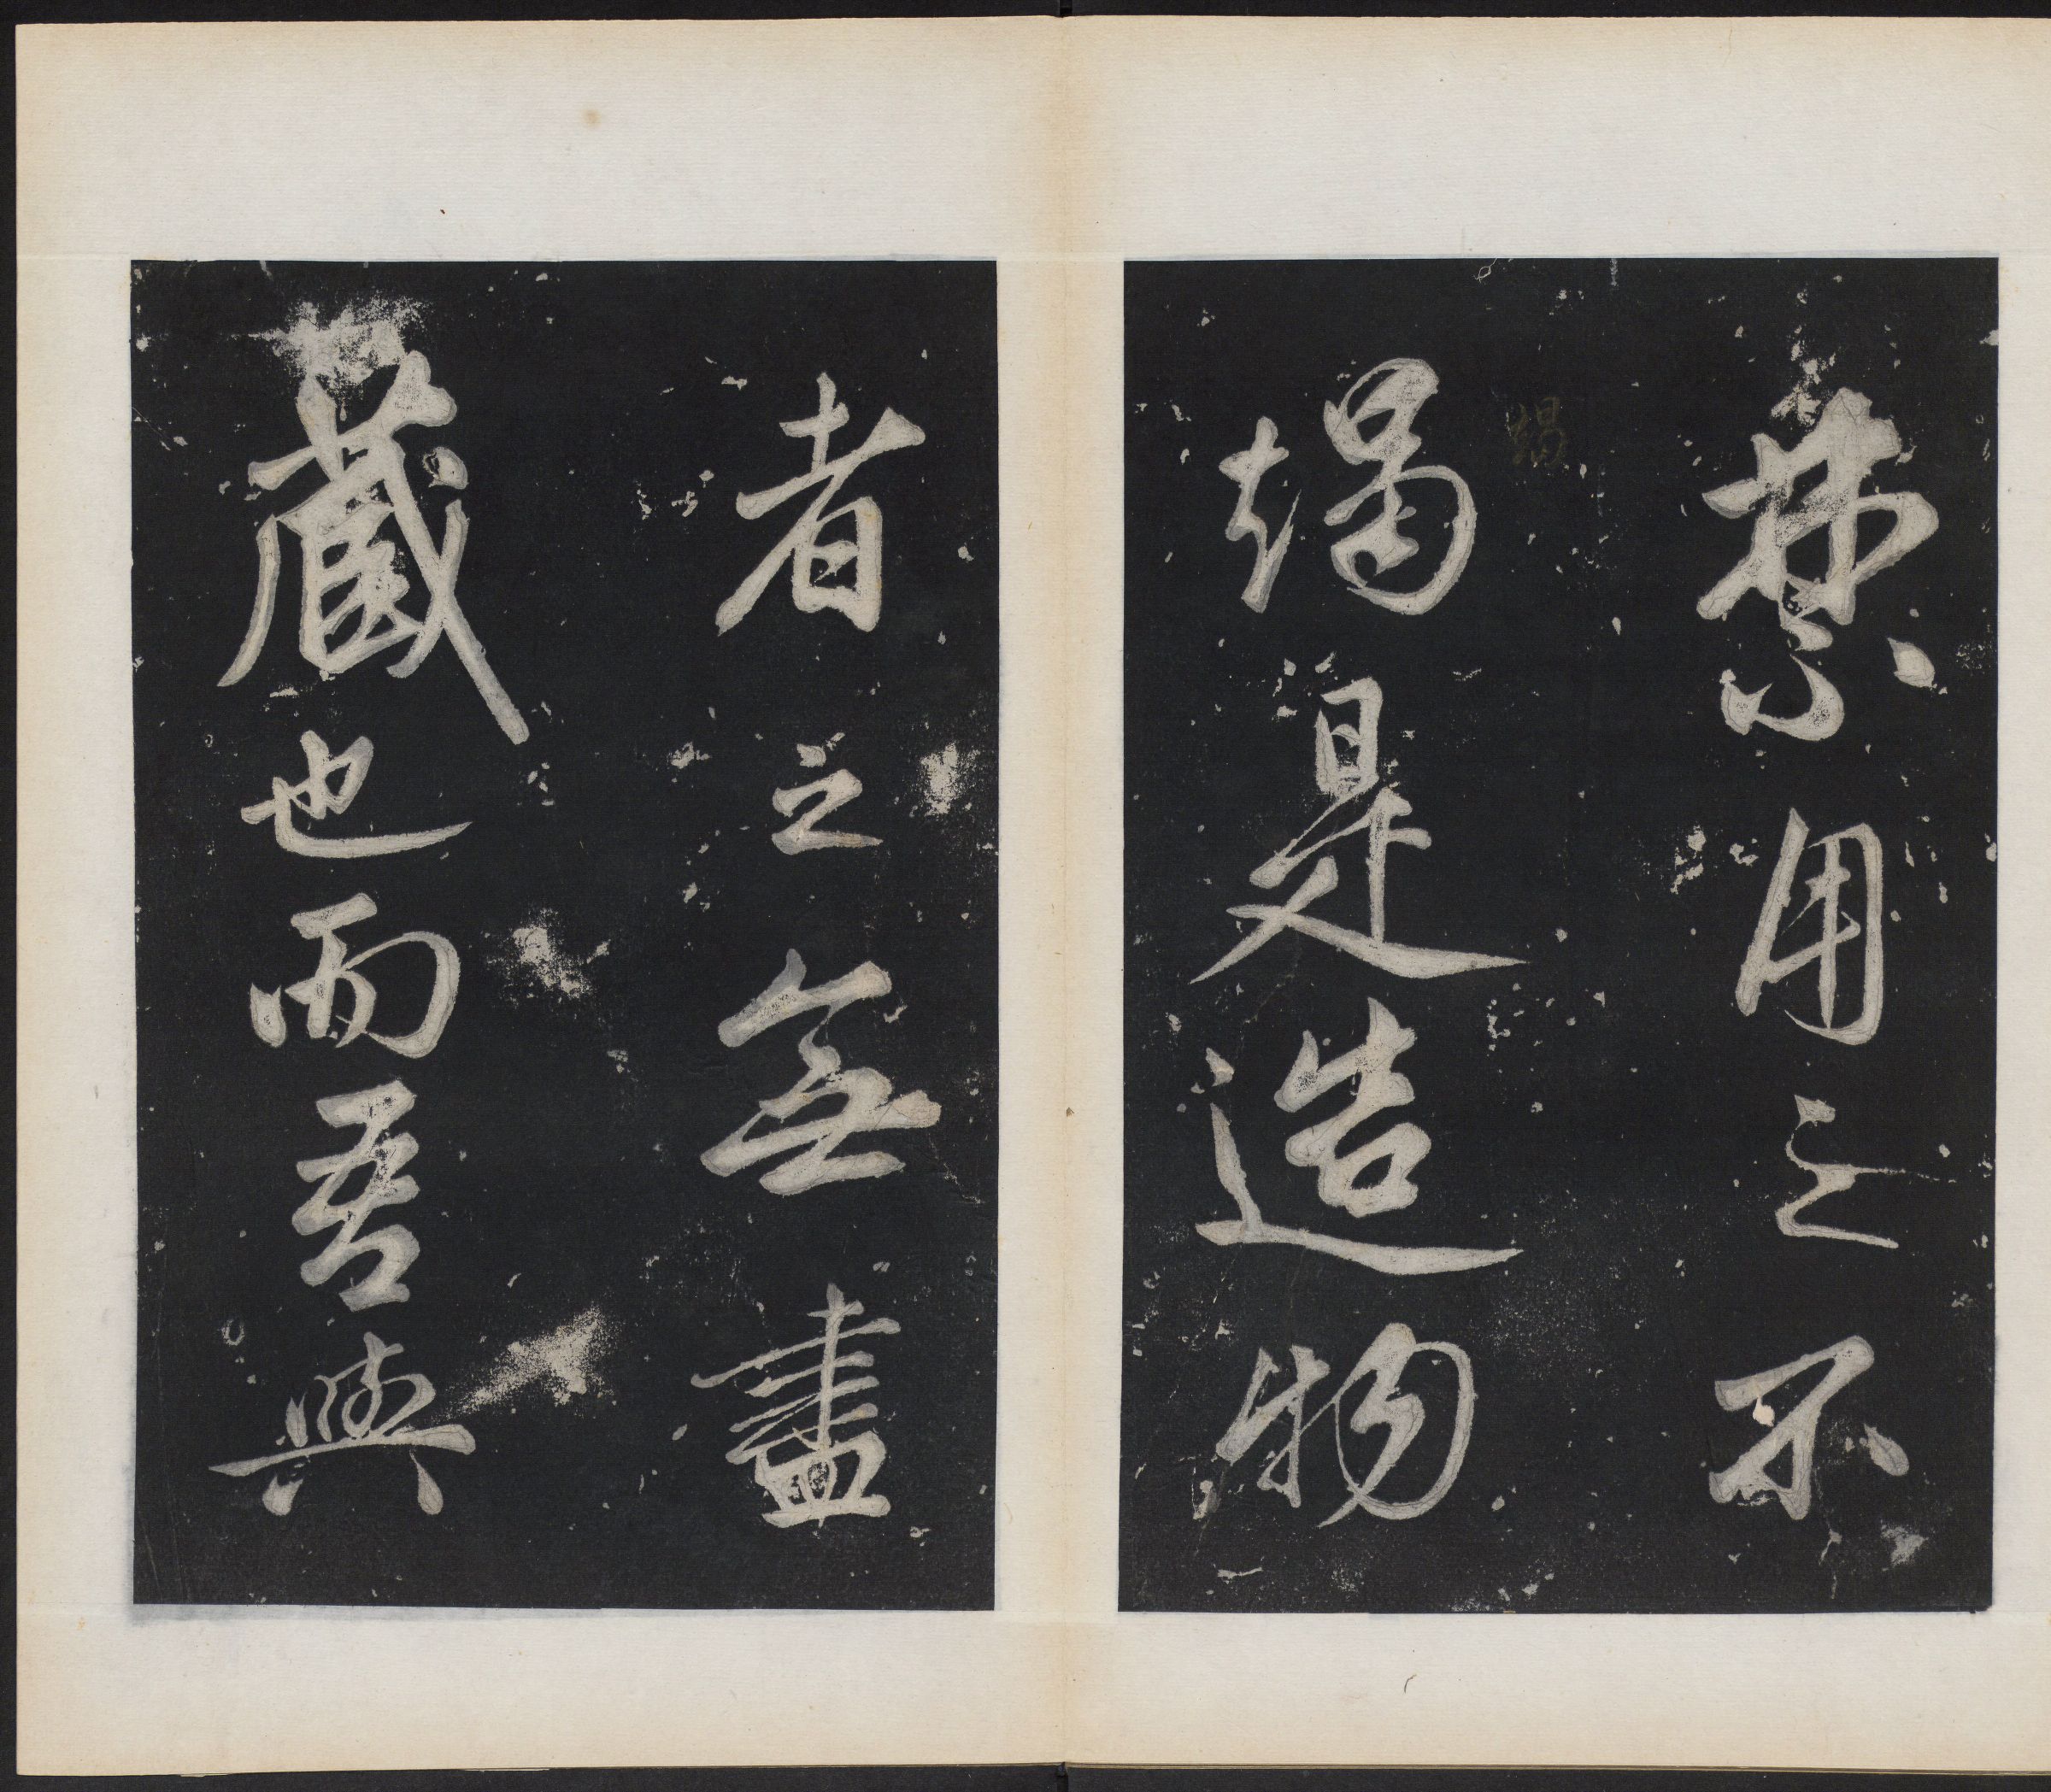 禁用之不
竭是造物
者之無盡
藏也而吾與
竭